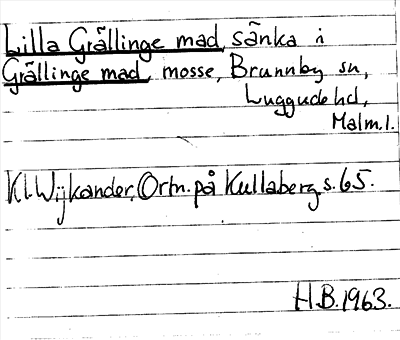 Lilla Grällinge mad, sänka i
Grällinge mad, mosse, Brunnby sn,
Luggude hd,
Malm.l.
Kl. Wijkander, Ortn. på Kullaberg s. 65.
H.B. 1963.